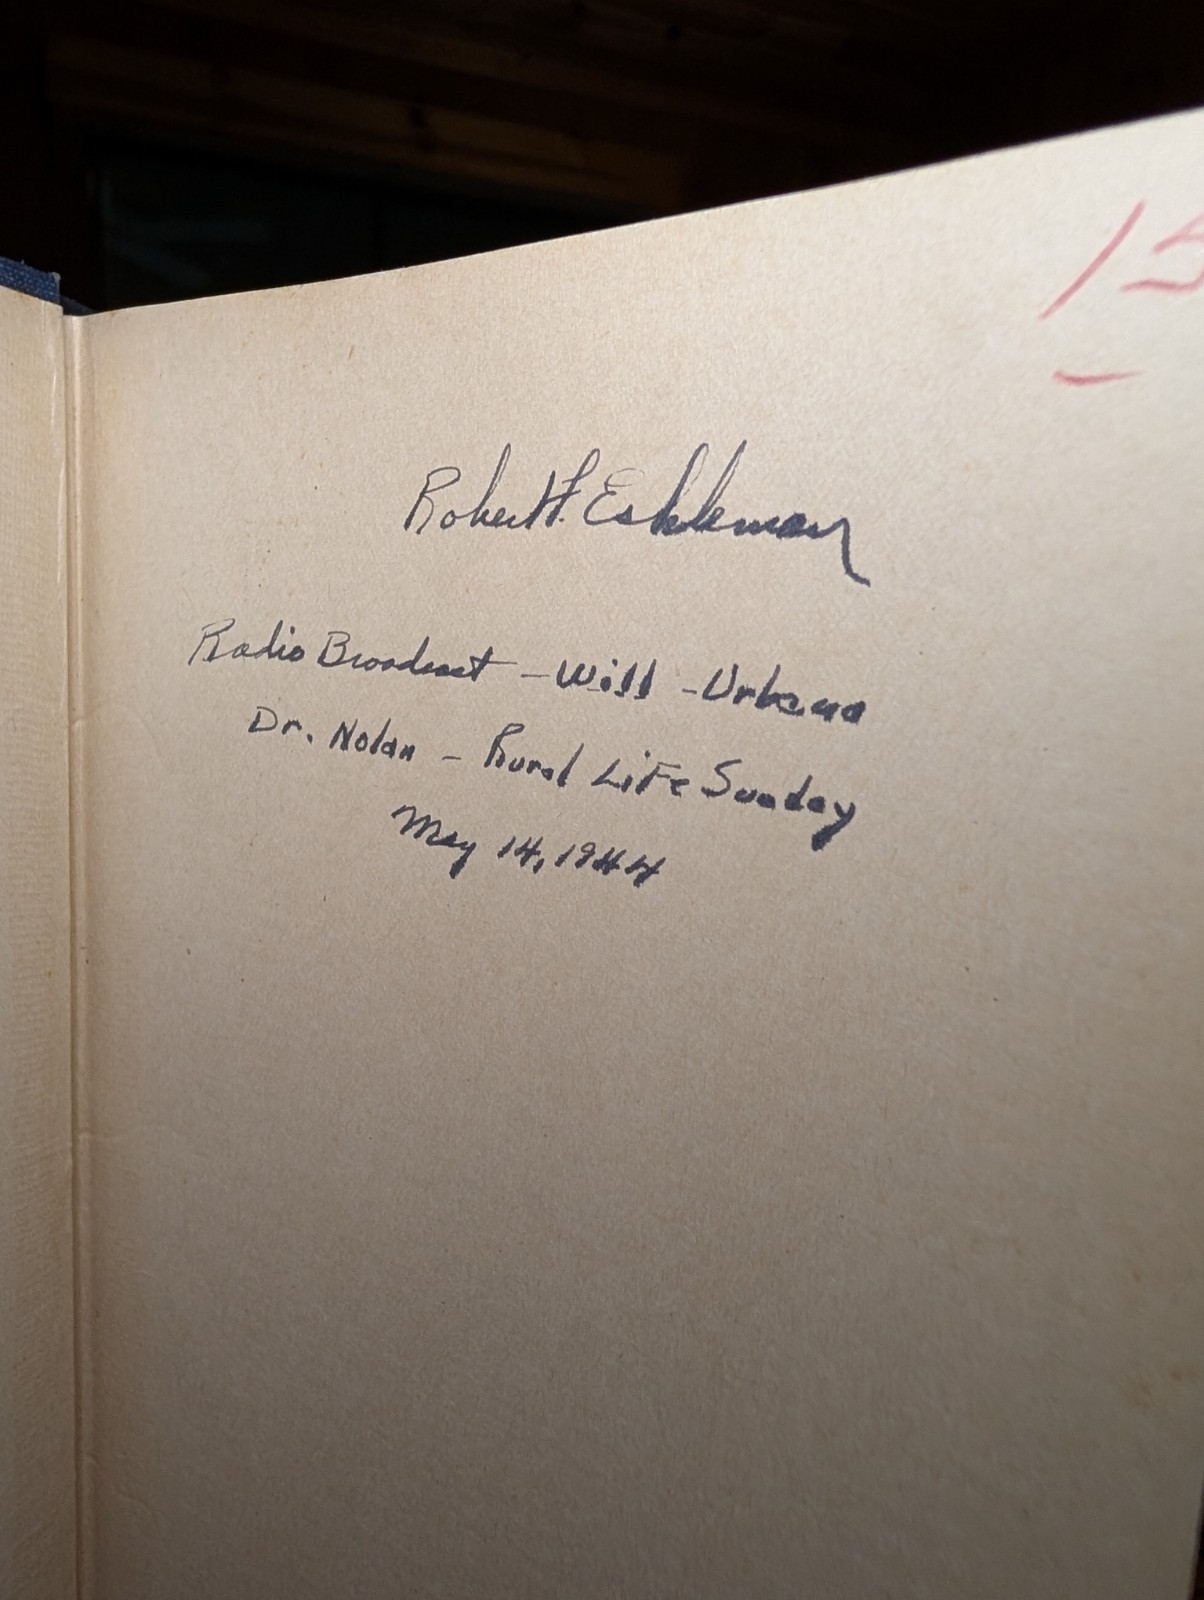 15
Robert F. Eshleman
Radio Broadcast - Will - Urbana
Dr. Nolan - Rural Life Sunday
May 14, 1944